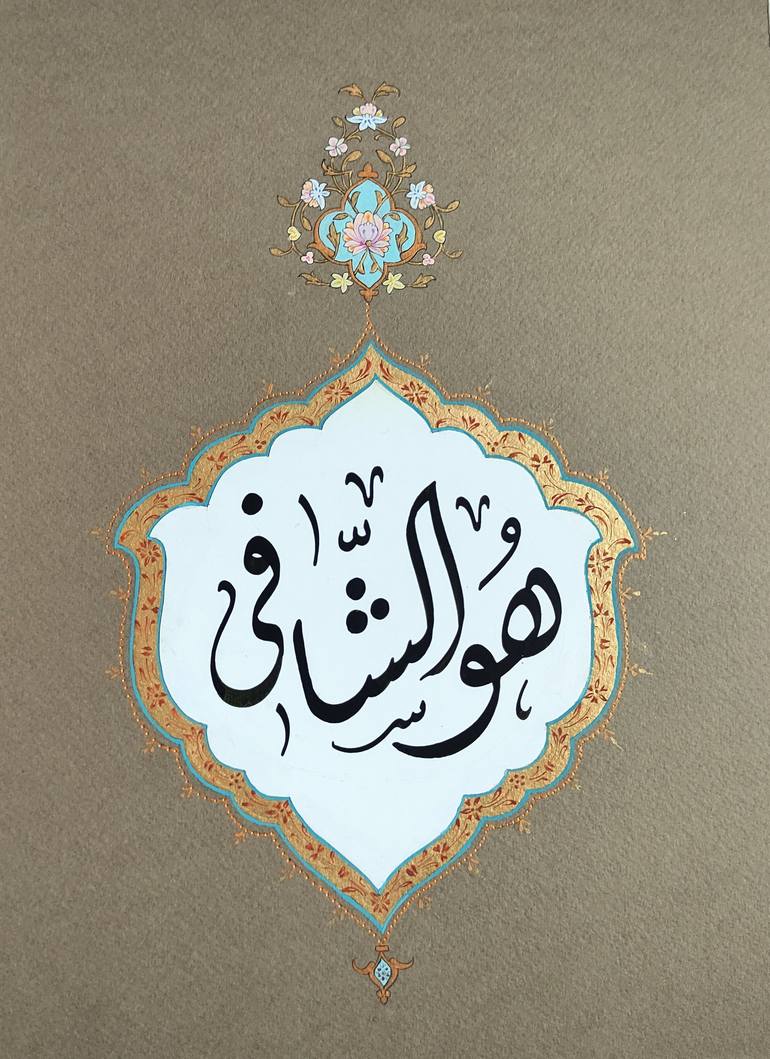 هُوَ الشَّافی